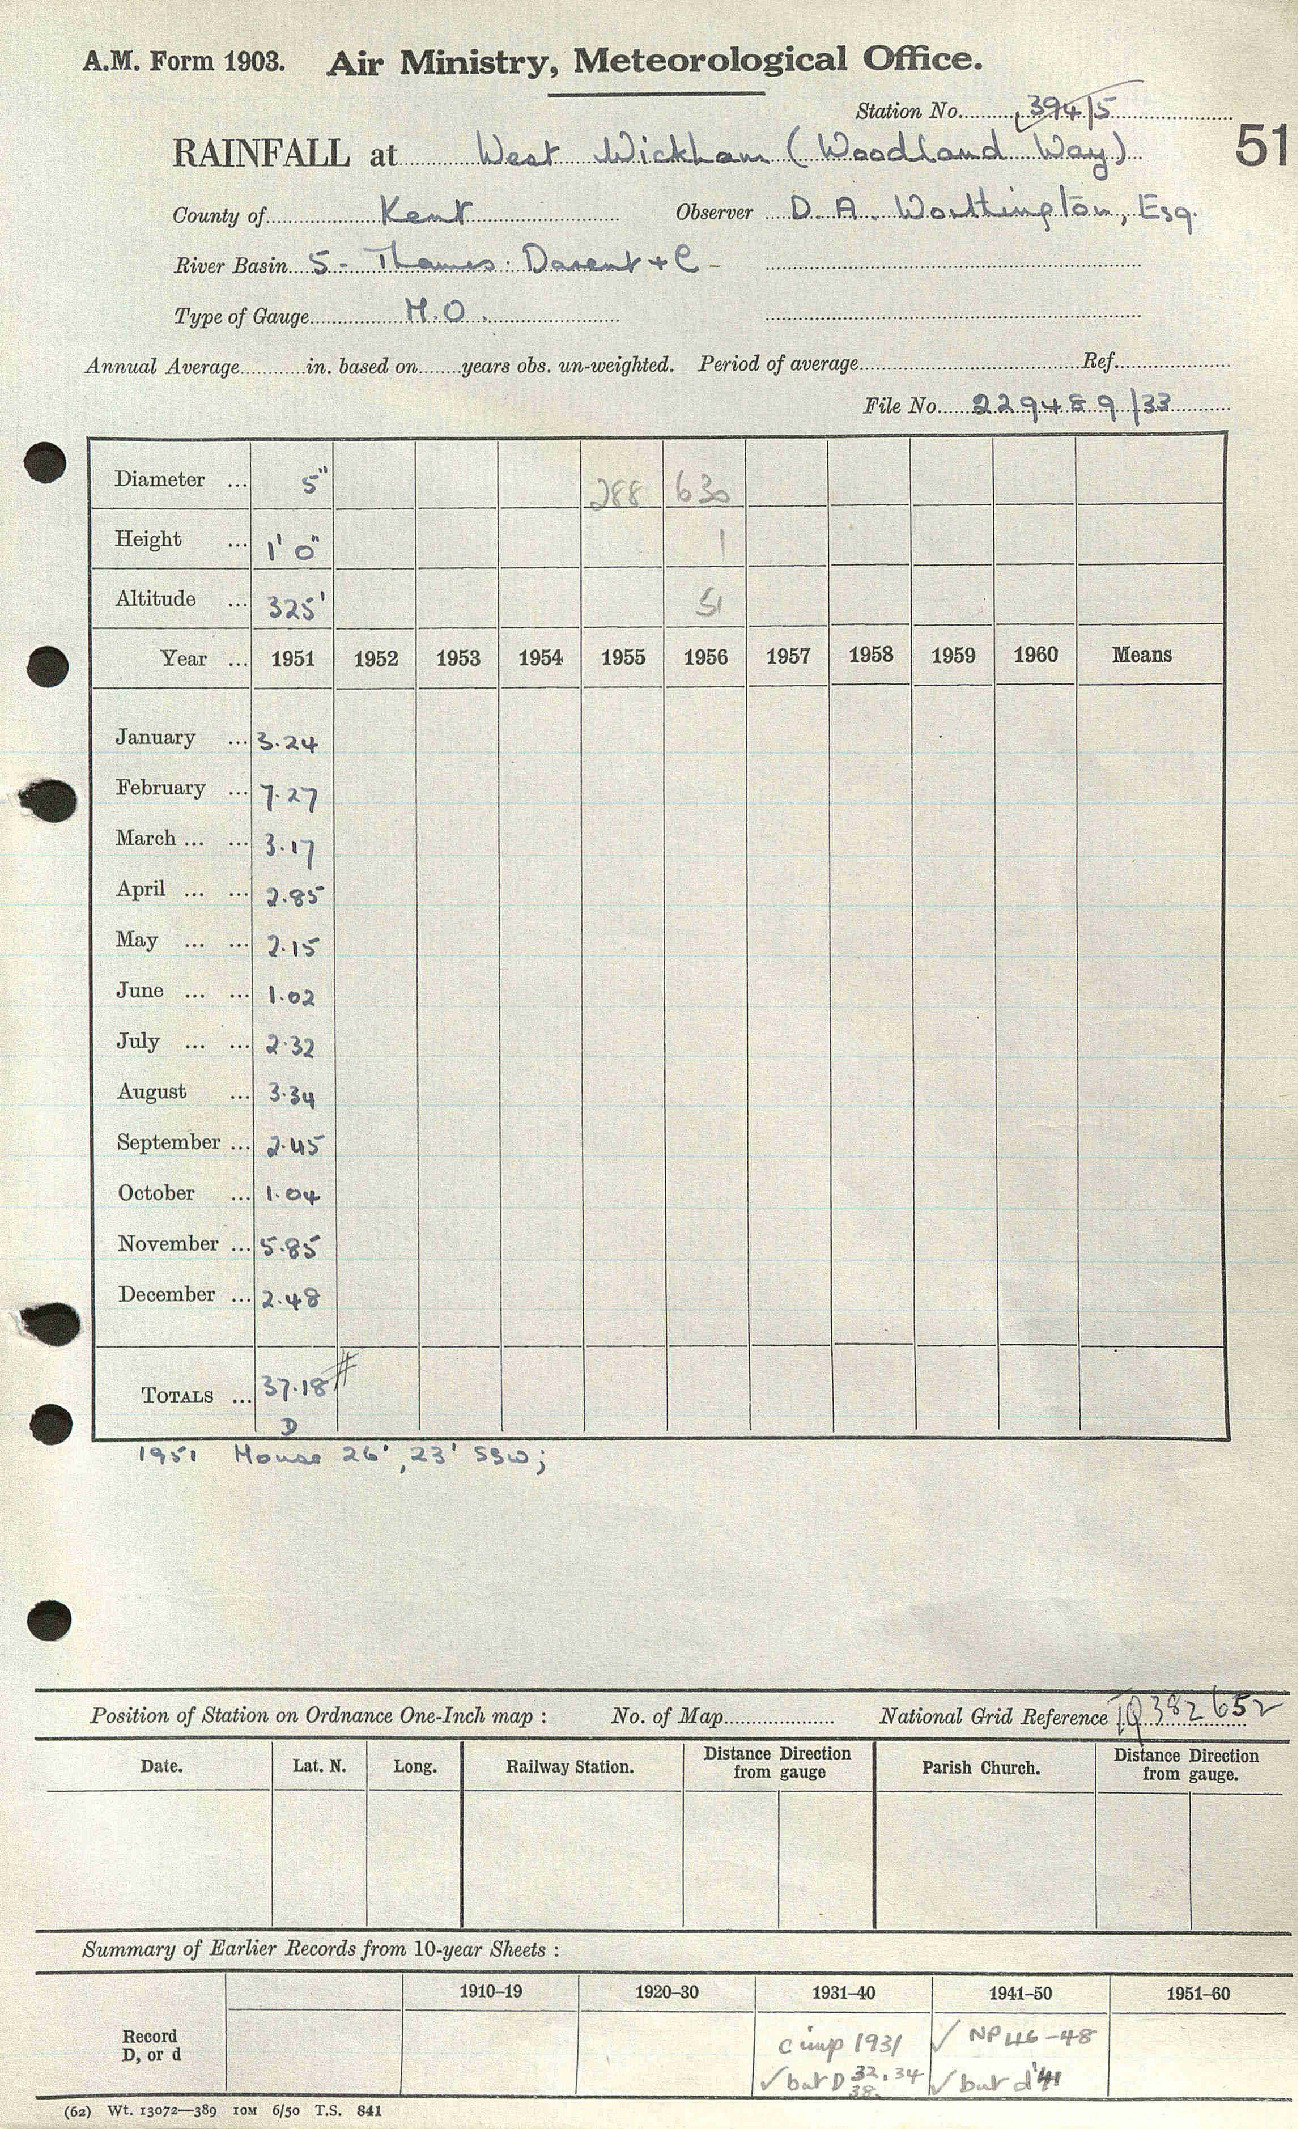 A.M. Form 1903. Air Ministry, Meteorological Office.
Station No. 394/5
RAINFALL at West Wickham (Woodland Way) 51
County of Kent Observer D. A. Worthington, Esq.
River Basin 5 - Thames. Darent + C -
Type of Gauge M.O.
Annual Average in. based on years obs. un-weighted. Period of average Ref.
File No. 229489/33
Diameter ... 5" 288 630
Height ... 1' 0" 1
Altitude ... 325' 51
Year ... 1951 1952 1953 1954 1955 1956 1957 1958 1959 1960 Means
January ... 3.24
February ... 7.27
March ... ... 3.17
April ... ... 2.85
May ... ... 2.15
June ... ... 1.02
July ... ... 2.32
August ... 3.34
September ... 2.45
October ... 1.04
November ... 5.85
December ... 2.48
TOTALS ... 37.18 #
D
1951 House 26', 23' SSW;
Position of Station on Ordnance One-Inch map : No. of Map National Grid Reference TQ 382 652
Date. Lat. N. Long. Railway Station. Distance Direction from gauge Parish Church. Distance Direction from gauge.
Summary of Earlier Records from 10-year Sheets :
1910–19 1920–30 1931–40 1941–50 1951–60
Record c imp 1931 ✓ NP 46-48
D, or d ✓ but D 32, 34 ✓ but d '41
38.
(62) Wt. 13072—389 10M 6/50 T.S. 841